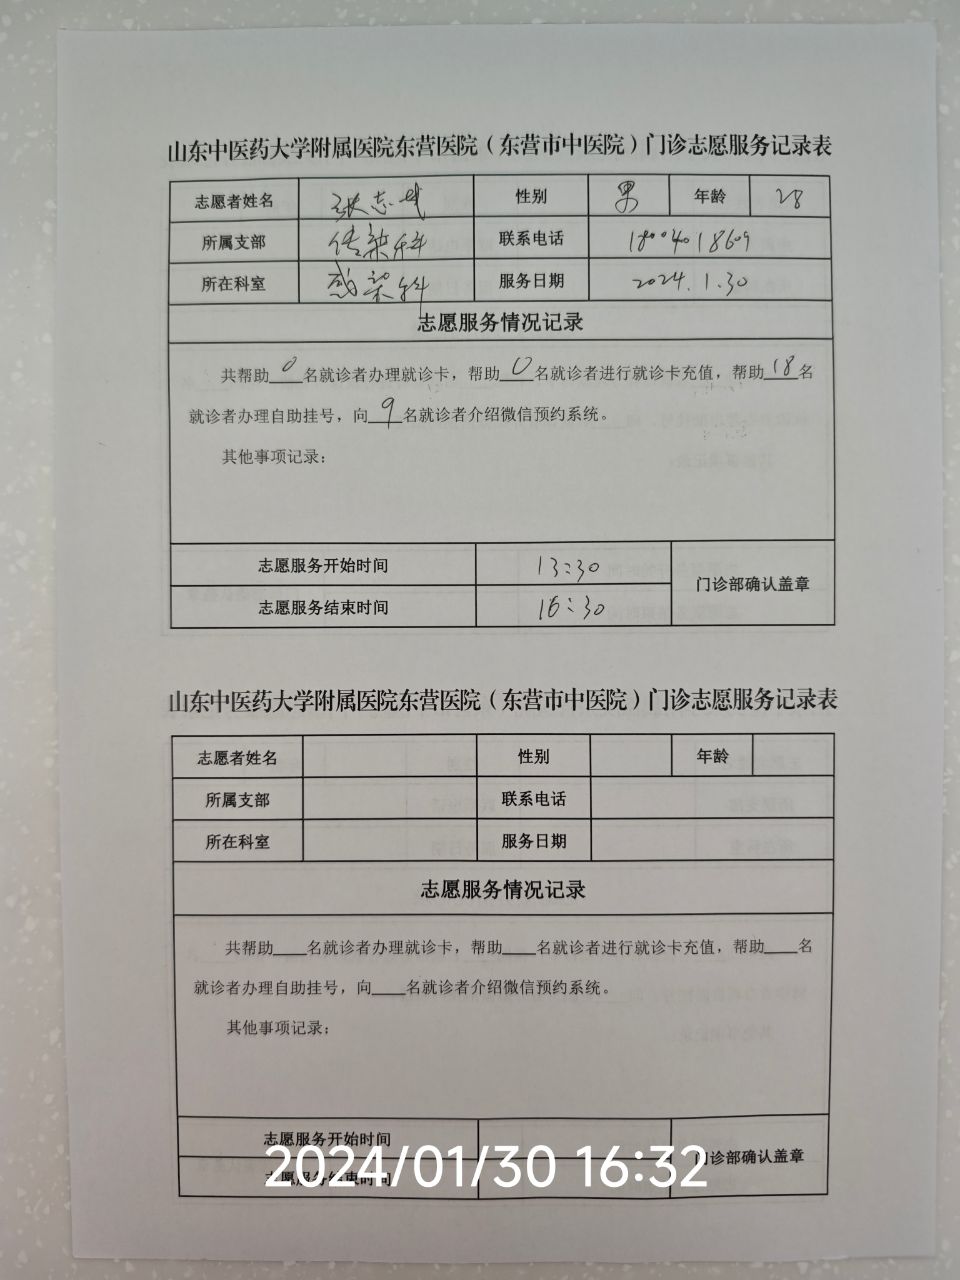 山东中医药大学附属医院东营医院（东营市中医院）门诊志愿服务记录表
志愿者姓名 张志武 性别 男 年龄 28
所属支部 传染科 联系电话 18004018609
所在科室 感染科 服务日期 2024.1.30
志愿服务情况记录
共帮助0名就诊者办理就诊卡，帮助0名就诊者进行就诊卡充值，帮助18名
就诊者办理自助挂号，向9名就诊者介绍微信预约系统。
其他事项记录：
志愿服务开始时间 13:30
门诊部确认盖章
志愿服务结束时间 16:30
山东中医药大学附属医院东营医院（东营市中医院）门诊志愿服务记录表
志愿者姓名 性别 年龄
所属支部 联系电话
所在科室 服务日期
志愿服务情况记录
共帮助____名就诊者办理就诊卡，帮助____名就诊者进行就诊卡充值，帮助____名
就诊者办理自助挂号，向____名就诊者介绍微信预约系统。
其他事项记录：
志愿服务开始时间
门诊部确认盖章
志愿服务结束时间
2024/01/30 16:32